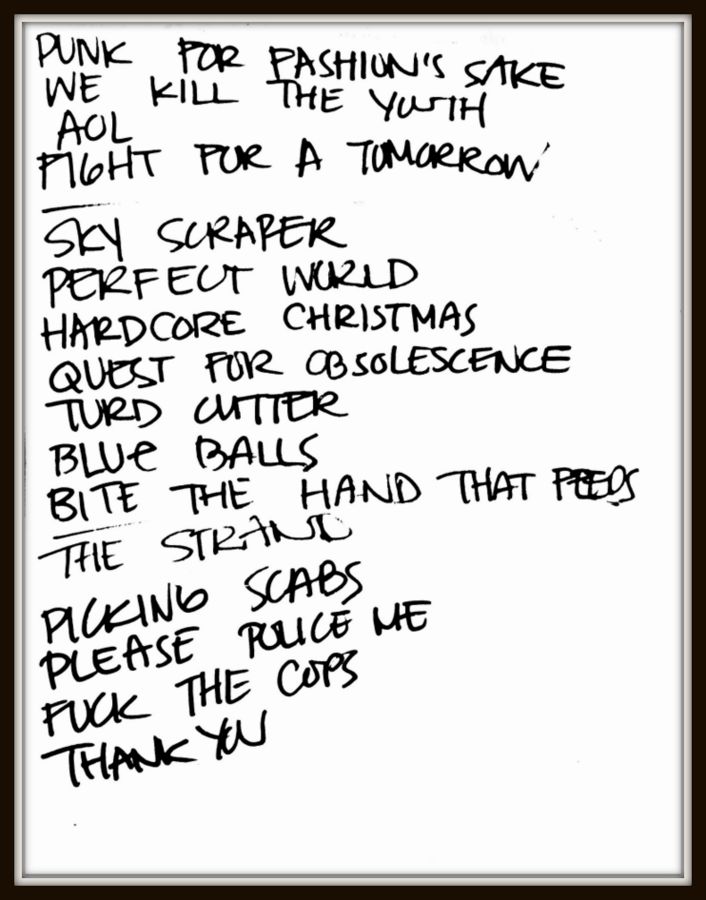 PUNK FOR FASHION'S SAKE
WE KILL THE YOUTH
AOL
FIGHT FOR A TOMORROW
SKY SCRAPER
PERFECT WORLD
HARDCORE CHRISTMAS
QUEST FOR OBSOLESCENCE
TURD CUTTER
BLUE BALLS
BITE THE HAND THAT FEEDS
THE STRAND
PICKING SCABS
PLEASE POLICE ME
FUCK THE COPS
THANK YOU